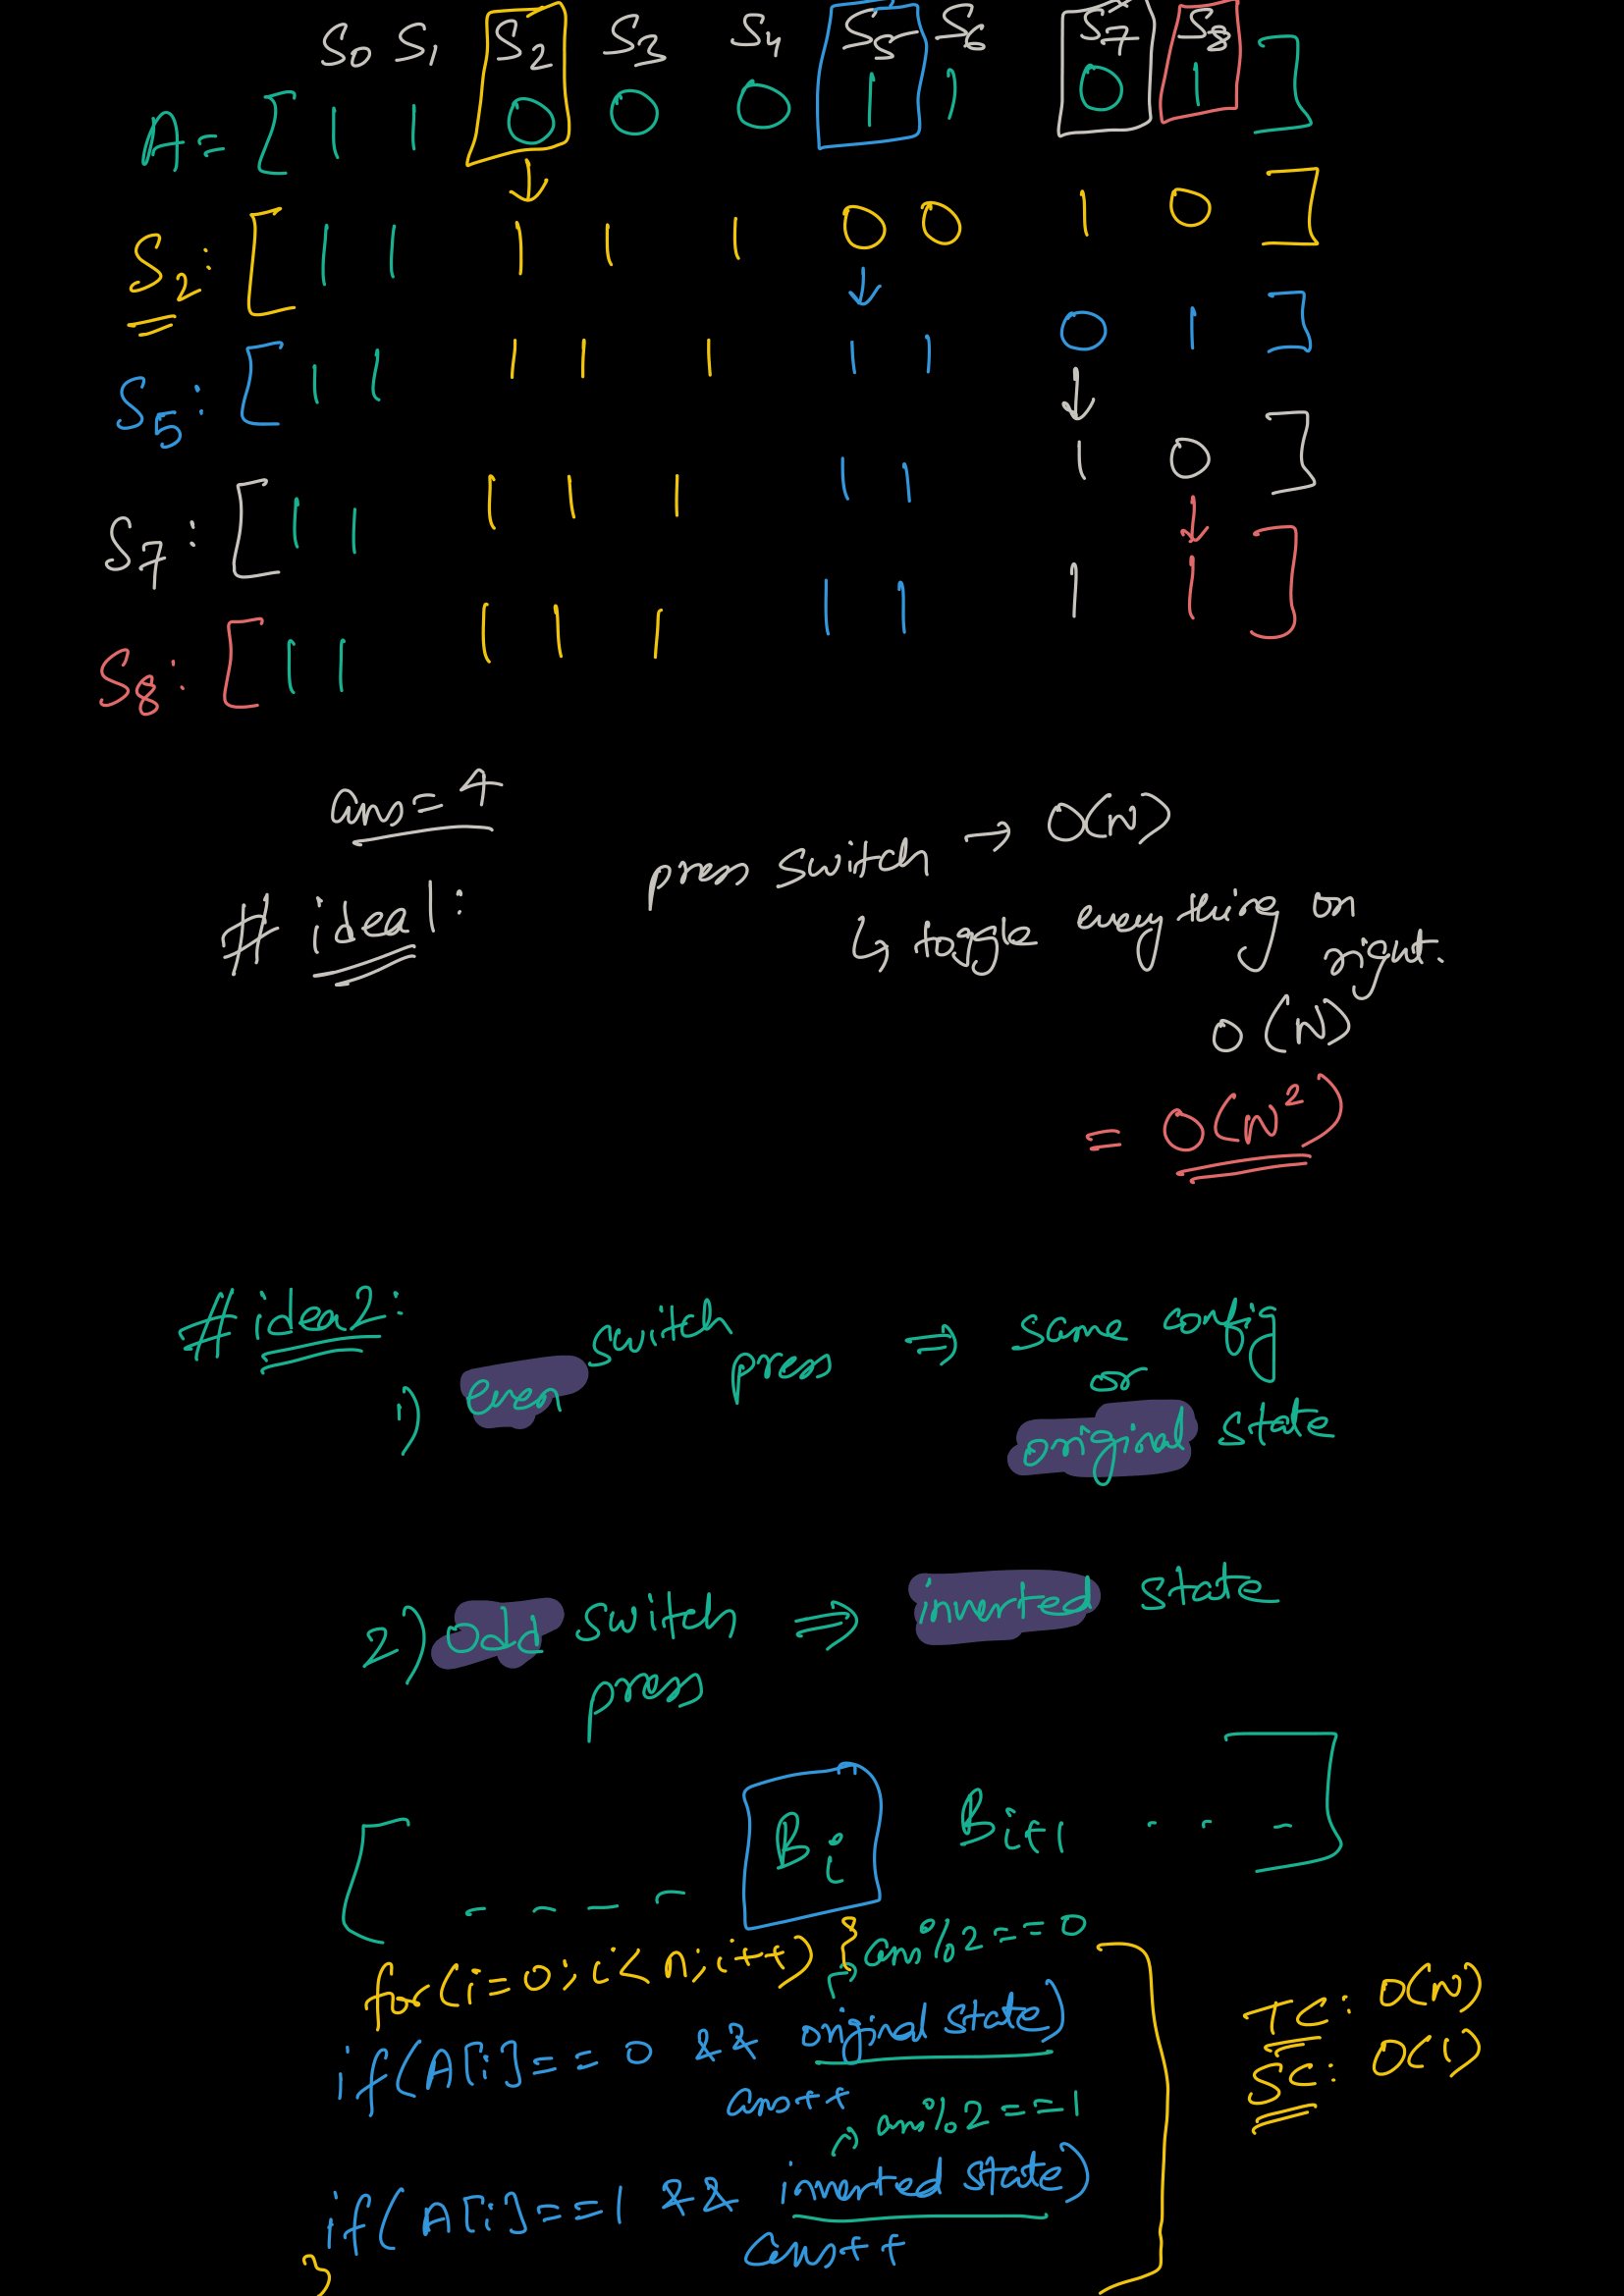 S0 S1 S2 S3 S4 S5 S6 S7 S8
A = [ 1 1 0 0 0 1 1 0 1 ]
S2: [ 1 1 1 1 1 0 0 1 0 ]
S5: [ 1 1 1 1 1 1 1 0 1 ]
S7: [ 1 1 1 1 1 1 1 1 0 ]
S8: [ 1 1 1 1 1 1 1 1 1 ]
ans = 4
# idea1:
press switch → O(N)
↳ toggle everything on
right.
O(N)
= O(N²)
# idea2:
1) even switch press ⇒ same config
or
original state
2) odd switch ⇒ inverted state
press
[ - - - - Bi Bi+1 . . - ]
for(i=0; i<n; i++) {
ans%2==0
if(A[i]==0 && original state)
ans++
ans%2==1
if(A[i]==1 && inverted state)
ans++
}
TC: O(N)
SC: O(1)